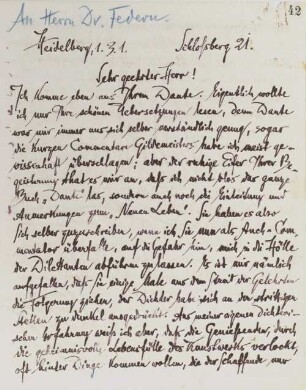 42
An Herrn Dr. Federn.
Heidelberg, 1.3.1. Schloßberg 21.
Sehr geehrter Herr!
Ich komme eben aus Ihrem Dante. Eigentlich wollte
ich nur Ihre schönen Uebersetzungen lesen, denn Dante
war mir immer aus sich selber verständlich genug, sogar
die kurzen Commentare Gildemeisters habe ich meist ge-
wissenhaft überschlagen; aber der ruhige Eifer Ihrer Be-
geisterung that es mir an, daß ich nicht blos das ganze
Buch „Dante" las, sondern auch noch die Einleitung und
Anmerkungen zum „Neuen Leben". Sie haben es also
sich selber zuzuschreiben, wenn ich Sie nun als Auch-Com-
mentator überfalle, auf die Gefahr hin, mich in die Hölle
der Dilettanten abführen zu lassen. Es ist mir nämlich
aufgefallen, daß Sie einige Male aus dem Streit der Gelehrten
die Folgerung ziehen, der Dichter habe sich an den strittigen
Stellen zu dunkel ausgedrückt. Aus meiner eigenen dichteri-
schen Erfahrung weiß ich aber, daß die Genießenden, durch
die geheimnisvolle Lebensfülle des Kunstwerks verlockt,
oft hinter Dinge kommen wollen, die der Schaffende nur